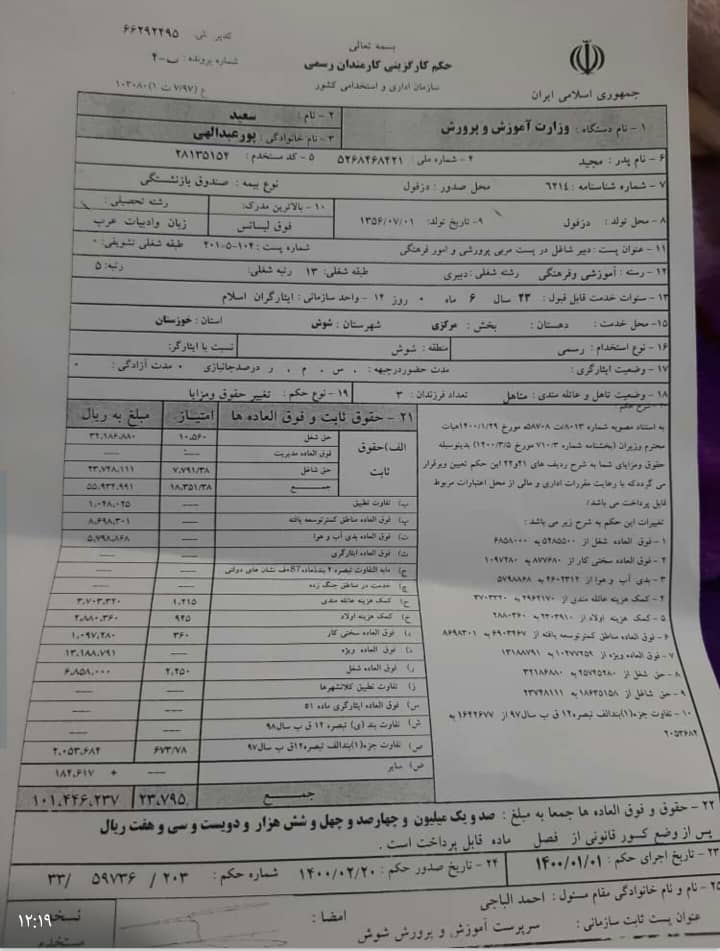 کدپر. نی. ۶۶۲۹۲۲۹۵
شماره پرونده: ب-۴۰
ع (۷/۹۷ ت ۱) ۱۰۳۰۸۰
بسمه تعالی
حکم کارگزینی کارمندان رسمی
سازمان اداری و استخدامی کشور
جمهوری اسلامی ایران
۱- نام دستگاه : وزارت آموزش و پرورش
۲- نام : سعید
۳- نام خانوادگی : پورعبدالهی
۴- شماره ملی : ۵۲۶۸۴۶۸۴۲۱
۵- کد مستخدم : ۲۸۱۳۵۱۵۴
۶- نام پدر : مجید
۷- شماره شناسنامه : ۶۲۱۴ محل صدور : دزفول نوع بیمه : صندوق بازنشستگی
۸- محل تولد : دزفول
۹- تاریخ تولد: ۱۳۵۶/۰۷/۰۱
۱۰- بالاترین مدرک: فوق لیسانس
رشته تحصیلی : زبان وادبیات عرب
۱۱- عنوان پست : دبیر شاغل در پست مربی پرورشی و امور فرهنگی شماره پست: ۱۰۴-۵-۲۰۱ طبقه شغلی تشویقی: ۰
۱۲- رسته : آموزشی وفرهنگی رشته شغلی : دبیری طبقه شغلی: ۱۳ رتبه شغلی: رتبه: ۵
۱۳- سنوات خدمت قابل قبول : ۲۳ سال ۶ ماه ۰ روز ۱۴- واحد سازمانی : ایثارگران اسلام
۱۵- محل خدمت : دهستان : بخش : مرکزی شهرستان : شوش استان : خوزستان
۱۶- نوع استخدام : رسمی منطقه : شوش نسبت با ایثارگر:
۱۷- وضعیت ایثارگری : مدت حضوردرجبهه : . س . م . ر درصدجانبازی ۰ مدت آزادگی : ۰
۱۸- وضعیت تاهل و عائله مندی : متاهل تعداد فرزندان : ۳ ۱۹- نوع حکم : تغییر حقوق ومزایا
شرح حکم :
به استناد مصوبه شماره ۸۰۱۳/ت ۵۸۷۰۸ه مورخ ۱۴۰۰/۱/۲۹هیات
محترم وزیران (بخشنامه شماره ۷۱۰/۳ مورخ ۱۴۰۰/۳/۵) بدینوسیله
حقوق ومزایای شما به شرح ردیف های ۲۱و۲۲ این حکم تعیین وبرقرار
می گرددکه با رعایت مقررات اداری و مالی از محل اعتبارات مربوط
قابل پرداخت می باشد/
تغییرات این حکم به شرح زیر می باشد :
۱- فوق العاده شغل از ۵۴۸۵۵۰۰ به ۶۸۵۸۰۰۰
۲- فوق العاده سختی کار از ۸۷۷۶۸۰ به ۱۰۹۷۲۸۰
۳- بدی آب و هوا از ۴۶۰۲۳۱۲ به ۵۷۹۸۸۶۸
۴- کمک هزینه عائله مندی از ۲۹۶۲۱۷۰ به ۳۷۰۳۳۲۰
۵- کمک هزینه اولاد از ۲۳۰۳۹۱۰ به ۲۸۸۰۳۶۰
۶- فوق العاده مناطق کمترتوسعه یافته از ۶۹۰۳۴۶۷ به ۸۶۹۸۳۰۱
۷- فوق العاده ویژه از ۱۰۴۷۷۲۵۲ به ۱۳۱۸۸۷۹۱
۸- حق شغل از ۲۵۷۴۵۲۸۰ به ۳۲۱۸۶۸۸۰
۹- حق شاغل از ۱۸۶۳۵۱۵۸ به ۲۳۷۴۸۱۱۱
۱۰- تفاوت جزء(۱)بندالف تبصره۱۲ ق ب سال۹۷ از ۱۶۴۲۶۷۷ به
۲۰۵۳۶۸۴
۲۱- حقوق ثابت و فوق العاده ها امتیاز مبلغ به ریال
الف)حقوق ثابت
حق شغل ۱۰,۵۶۰ ۳۲,۱۸۶,۸۸۰
فوق العاده مدیریت --- ---
حق شاغل ۷,۷۹۱/۳۸ ۲۳,۷۴۸,۱۱۱
جمـــع ۱۸,۳۵۱/۳۸ ۵۵,۹۳۴,۹۹۱
ب) تفاوت تطبیق --- ۱,۰۴۸,۰۲۵
پ) فوق العاده مناطق کمترتوسعه یافته --- ۸,۶۹۸,۳۰۱
ت) فوق العاده بدی آب و هوا --- ۵,۷۹۸,۸۶۸
ث) فوق العاده ایثارگری --- ---
ج) مابه التفاوت تبصره ۲ بندماده87مف نشان های دولتی --- ---
چ) خدمت در مناطق جنگ زده --- ---
ح) کمک هزینه عائله مندی ۱,۲۱۵ ۳,۷۰۳,۳۲۰
خ) کمک هزینه اولاد ۹۴۵ ۲,۸۸۰,۳۶۰
د) فوق العاده سختی کار ۳۶۰ ۱,۰۹۷,۲۸۰
ذ) فوق العاده ویژه --- ۱۳,۱۸۸,۷۹۱
ر) فوق العاده شغل ۲,۲۵۰ ۶,۸۵۸,۰۰۰
ز) تفاوت تطبیق کلانشهرها --- ---
س) فوق العاده ایثارگری ماده ۵۱ --- ---
ش) تفاوت بند (ی) تبصره ۱۲ ق ب سال۹۸ --- ---
ص) تفاوت جزء(۱)بندالف تبصره۱۲ق ب سال۹۷ ۶۷۳/۷۸ ۲,۰۵۳,۶۸۴
ض) سایر --- + ۱۸۴,۶۱۷
جمـــع ۲۳,۷۹۵ ۱۰۱,۴۴۶,۲۳۷
۲۲- حقوق و فوق العاده ها جمعا به مبلغ : صد و یک میلیون و چهارصد و چهل و شش هزار و دویست و سی و هفت ریال
پس از وضع کسور قانونی از فصل ماده قابل پرداخت است .
۲۳- تاریخ اجرای حکم : ۱۴۰۰/۰۱/۰۱ ۲۴- تاریخ صدور حکم : ۱۴۰۰/۰۲/۲۰ شماره حکم : ۲۰۳ / ۵۹۷۳۶ /۳۳
۲۵- نام و نام خانوادگی مقام مسئول : احمد الباجی
امضا :
عنوان پست ثابت سازمانی : سرپرست آموزش و پرورش شوش
مستخدم
۱۲:۱۹